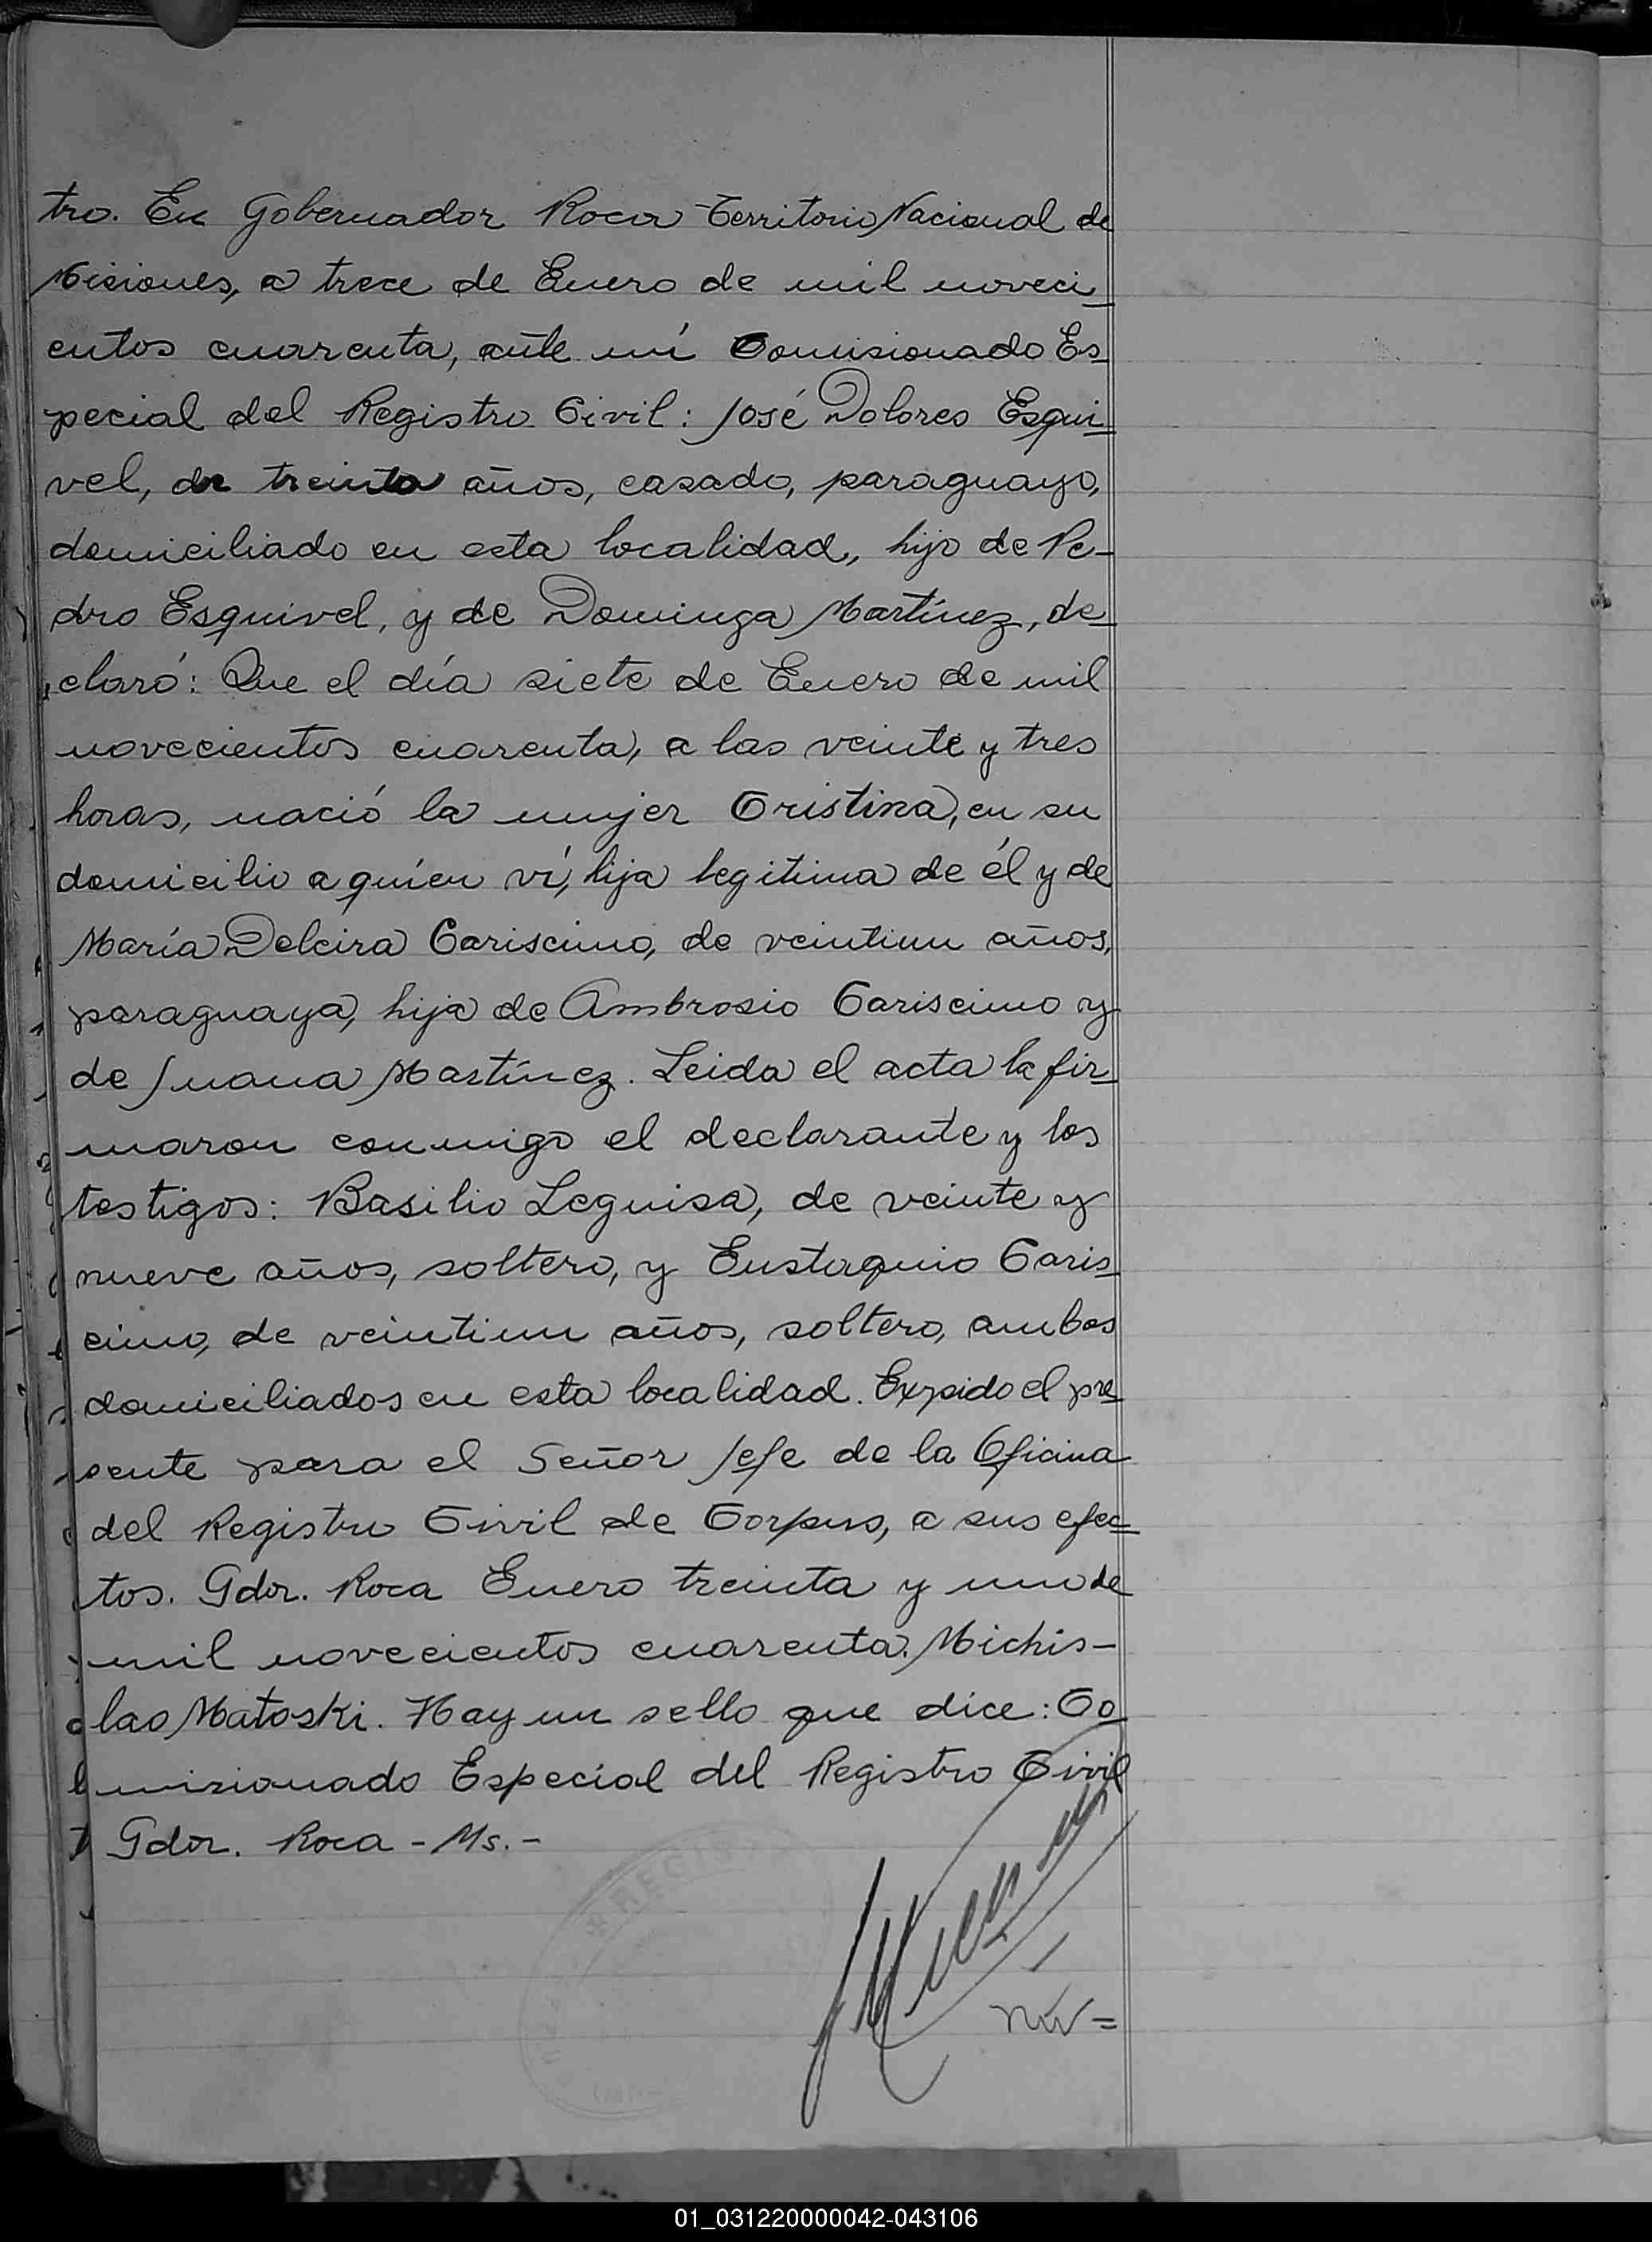 tro. En Gobernador Roca Territorio Nacional de
Misiones, a trece de Enero de mil noveci_
entos cuarenta, ante mí Comisionado Es_
pecial del Registro Civil: José Dolores Esqui_
vel, de treinta años, casado, paraguayo,
domiciliado en esta localidad, hijo de Pe-
dro Esquivel, y de Dominga Martínez, de_
claró: Que el día siete de Enero de mil
novecientos cuarenta, a las veinte y tres
horas, nació la mujer Cristina, en su
domicilio a quien ví, hija legitima de él y de
María Delcira Cariscimo, de veintiun años,
paraguaya, hija de Ambrosio Cariscimo y
de Juana Martínez. Leida el acta la fir_
maron conmigo el declarante y los
testigos: Basilio Leguisa, de veinte y
nueve años, soltero, y Eustaquio Caris_
cimo, de veintiun años, soltero, ambos
domiciliados en esta localidad. Expido el pre_
sente para el Señor Jefe de la Oficina
del Registro Civil de Corpus, a sus efec_
tos. Gdor. Roca Enero treinta y uno de
mil novecientos cuarenta. Michis-
lao Matoski. Hay un sello que dice: Co_
misionado Especial del Registro Civil
Gdor. Roca - Ms. -
REGIS
01_031220000042-043106